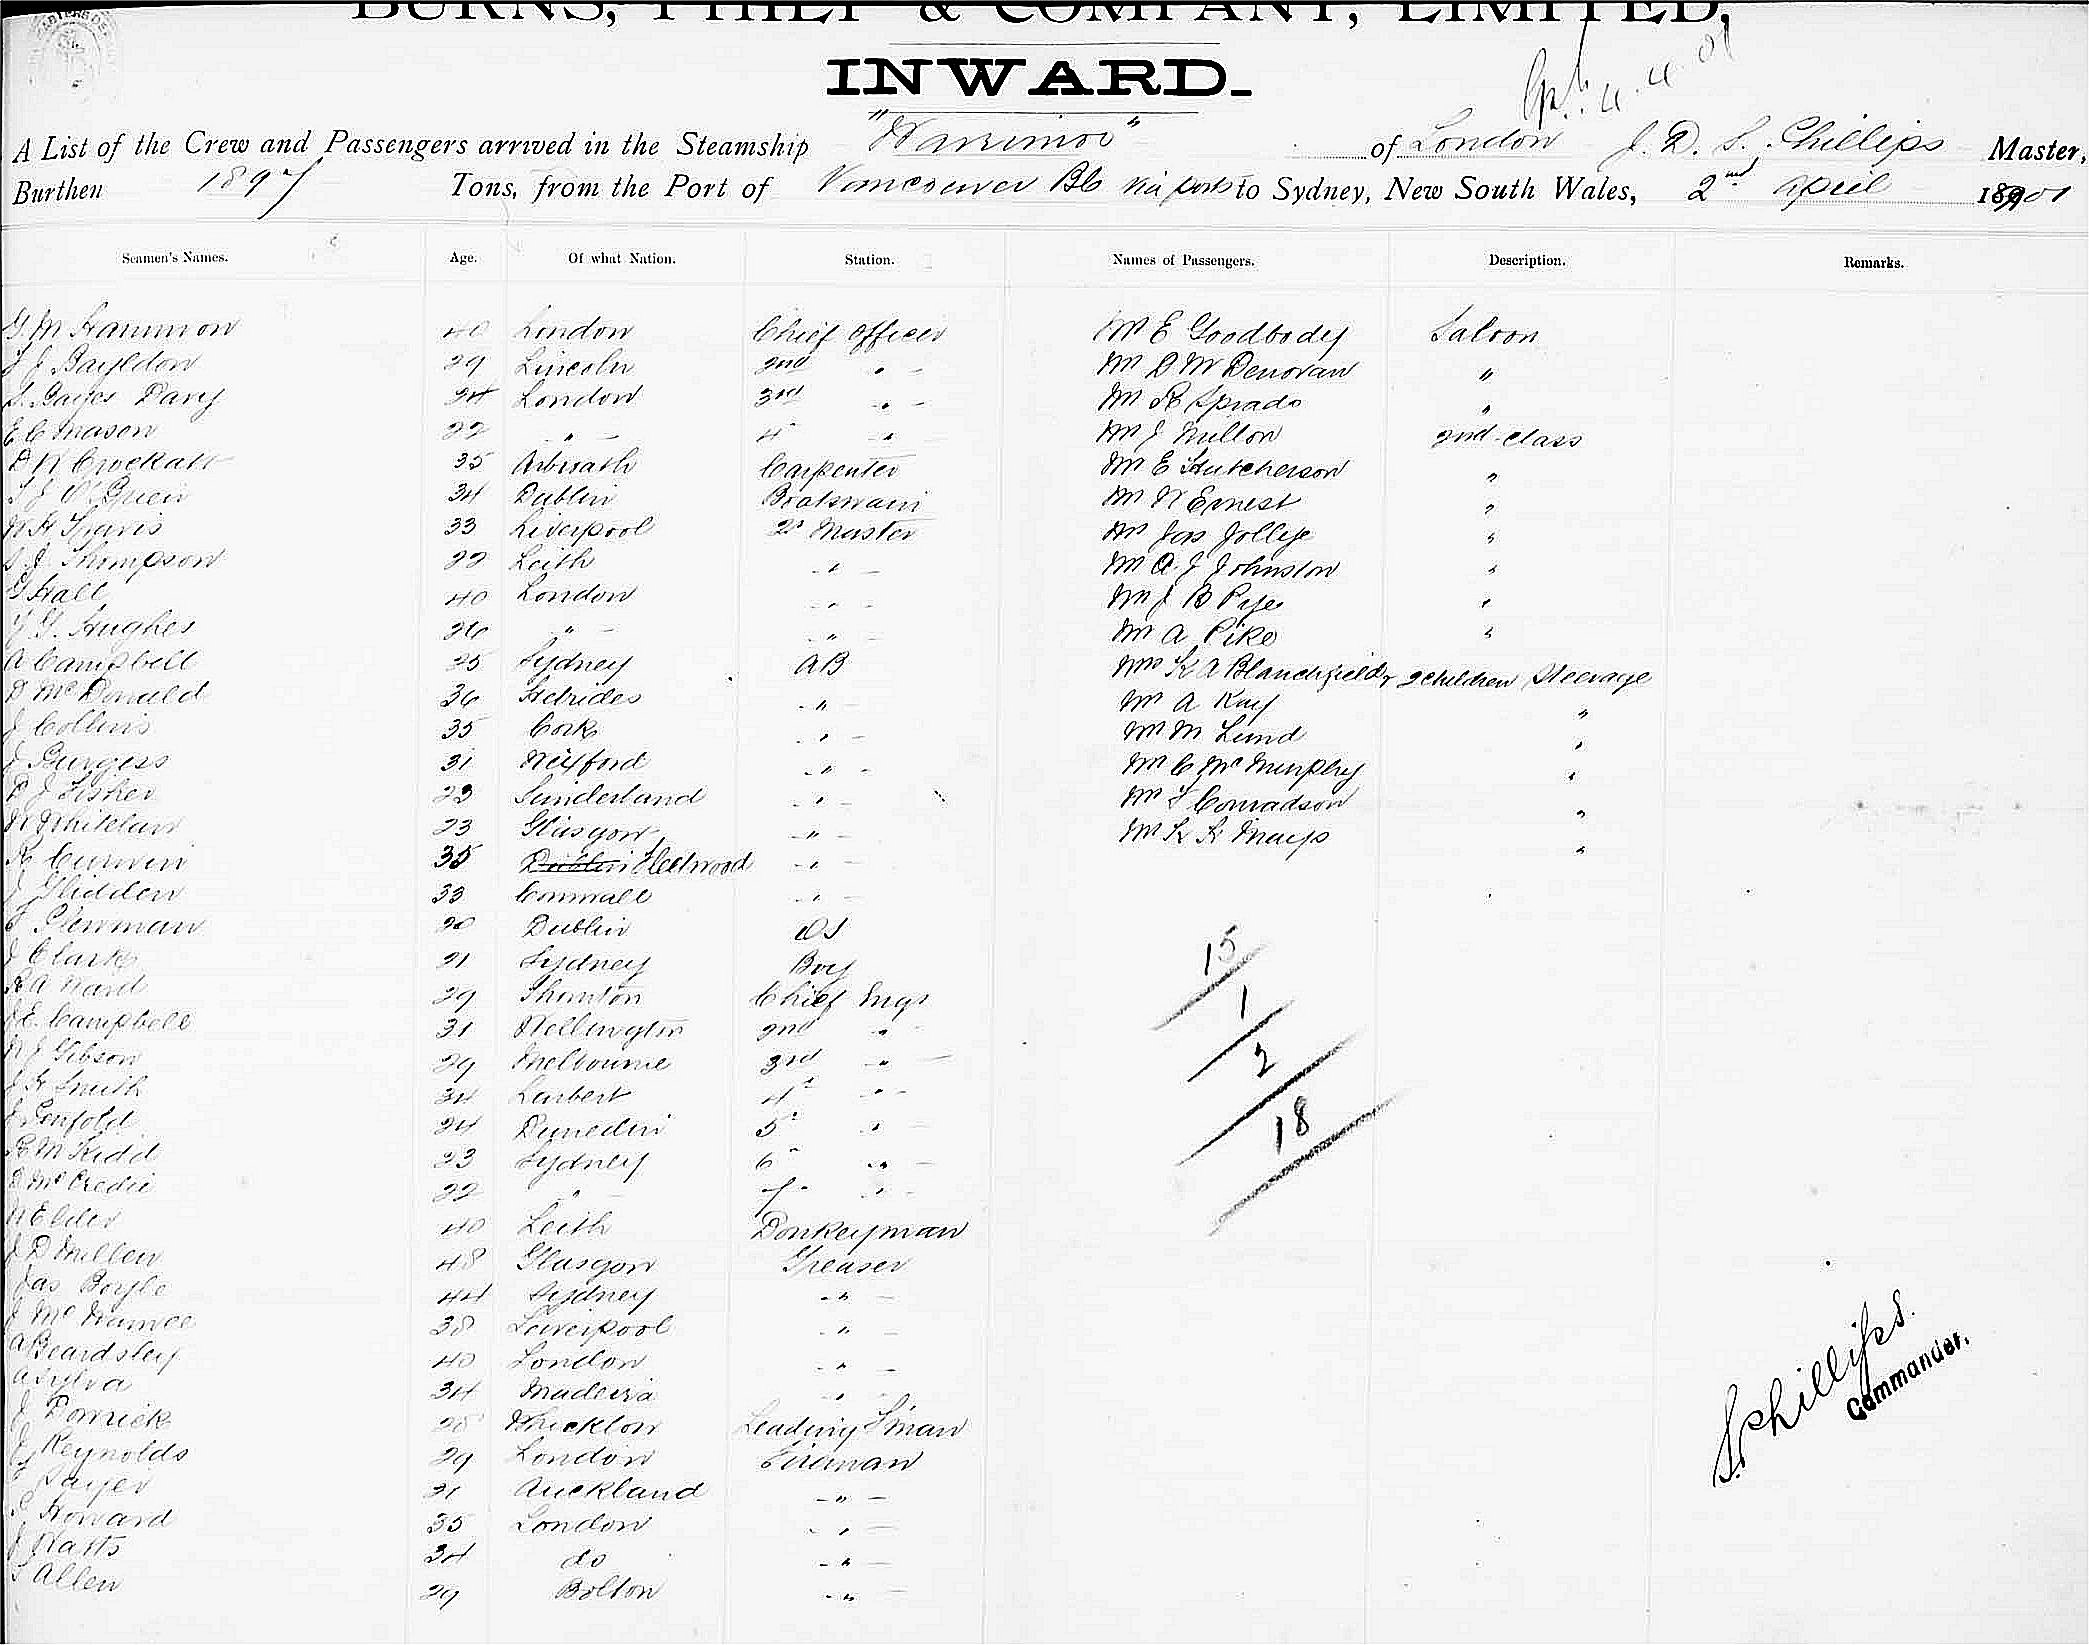 BURNS, PHILP & COMPANY, LIMITED,
INWARD.
4.4.01
A List of the Crew and Passengers arrived in the Steamship "Warrimoo" of London J. D. S. Phillips Master,
Burthen 1897 Tons, from the Port of Vancouver BC via ports to Sydney, New South Wales, 2nd April 1901
Seamen's Names. Age. Of what Nation. Station. Names of Passengers. Description. Remarks.
G M Hammon 40 London Chief Officer Mr E Goodbody Saloon
J J Bayldon 29 Lincoln 2nd " Mr D M Denovan "
S. Bayes Davy 24 London 3rd " Mr R Sprado "
E C Mason 22 " 4th " Mr J Millon 2nd class
D W Crockatt 35 Arbroath Carpenter Mr E Hutcherson "
34 Dublin Boatswain Mr W Ernest "
W H Travis 33 Liverpool Qr Master Mr Jas Jollye "
S J Thompson 22 Leith " Mr A. J Johnston "
G Hall 40 London " Mr J B Pye "
G. Hughes 26 " " Mr A Pike "
A Campbell 25 Sydney AB Mrs K A Blanchfield & 2 children Steerage
D McDonald 36 Hebrides " Mr A Kay "
J Collins 35 Cork " Mr M Lund "
J Burgess 31 Wexford " Mr C McMurphy "
P J Fisher 23 Sunderland " Mr T Conradson "
W Whitelaw 23 Glasgow " Mr K K Mays "
R Curwin 35 Dublin Fleetwood "
J Glidden 33 Cornwall "
F Plewman 20 Dublin OS
J Clark 21 Sydney Boy
R A Ward 29 Thornton Chief Engr
J E. Campbell 31 Wellington 2nd "
W J Gibson 29 Melbourne 3rd "
J K Smith 34 Larbert 4th "
J Penfold 24 Dunedin 5th "
R M Kidd 23 Sydney 6th "
D McCredie 22 " 7th "
W Elder 40 Leith Donkeyman
J D Millen 48 Glasgow Greaser
Jas Boyle 44 Sydney "
J McNamee 38 Liverpool "
A Beardsley 40 London "
A Sylva 34 Madeira "
J Dornick 28 Whicklow Leading F'man
J Reynolds 29 London Fireman
Sayer 21 Auckland "
S Howard 35 London "
J Watts 34 do "
S Allen 29 Bolton "
15
1
2
18
S. Phillips.
Commander.